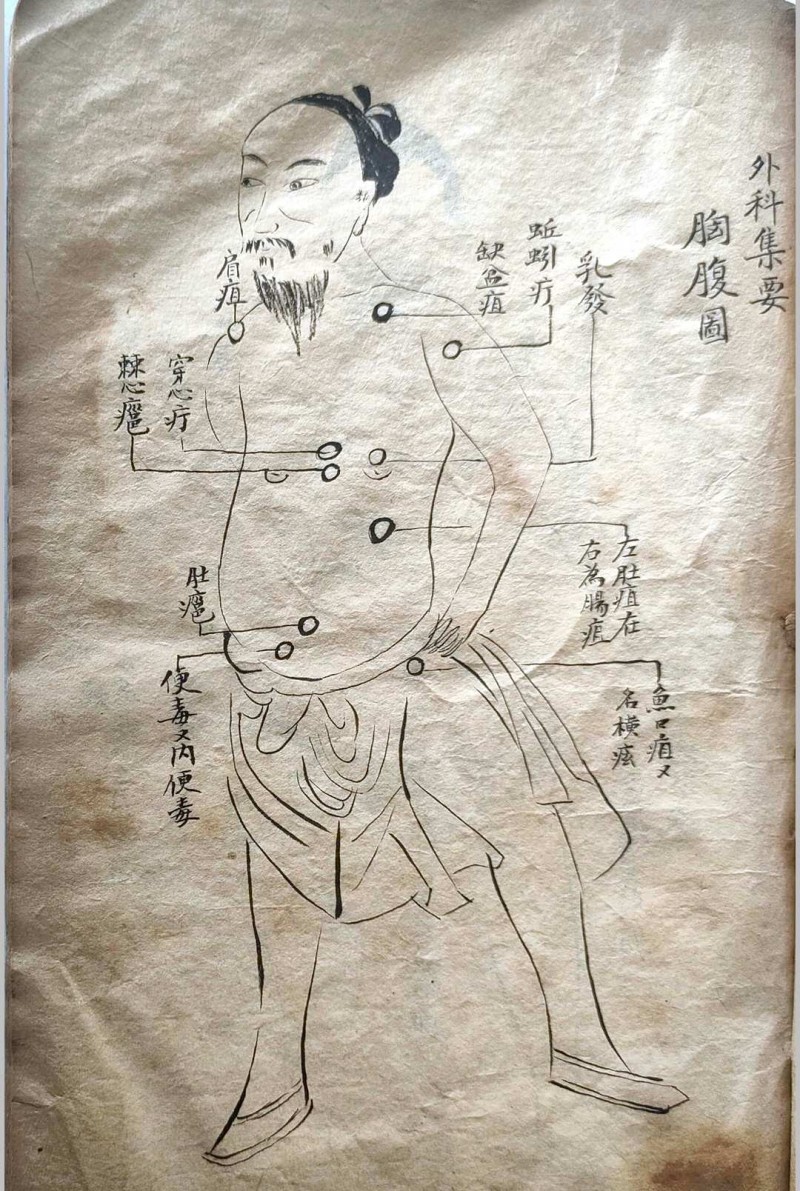 外科集要
胸腹圖
乳發
蚯蚓疔
缺盆疽
左肚疽在
右為腸疽
魚口疽又
名橫痃
肩疽
穿心疔
心㿈
肚㿈
便毒又內便毒